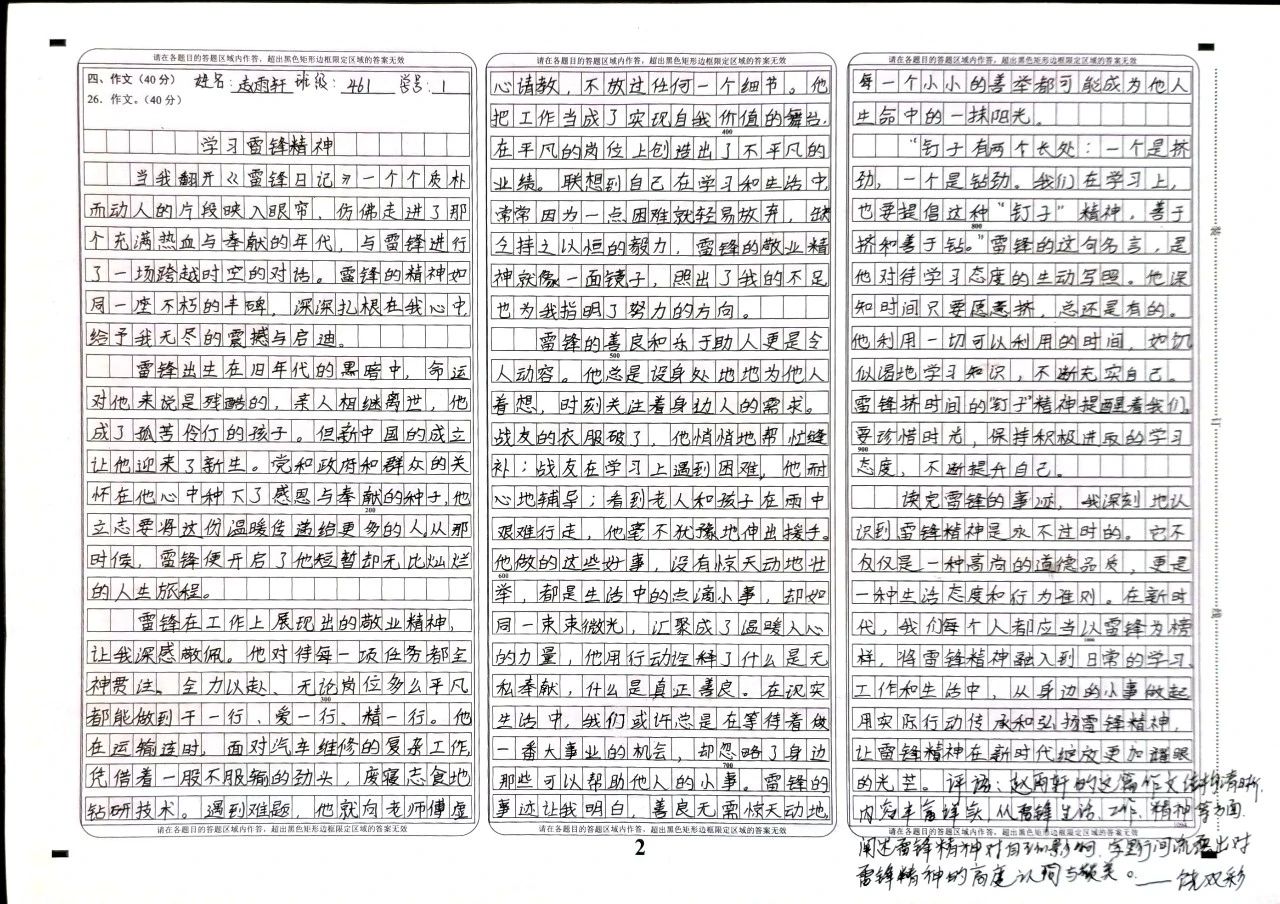 请在各题目的答题区域内作答，超出黑色矩形边框限定区域的答案无效
四、作文（40 分） 姓名：赵雨轩 班级：461 学号：1
26. 作文。（40 分）
学习雷锋精神
当我翻开《雷锋日记》一个个质朴
而动人的片段映入眼帘，仿佛走进了那
个充满热血与奉献的年代，与雷锋进行
了一场跨越时空的对话。雷锋的精神如
同一座不朽的丰碑，深深扎根在我心中，
给予我无尽的震撼与启迪。
雷锋出生在旧年代的黑暗中，命运
对他来说是残酷的，亲人相继离世，他
成了孤苦伶仃的孩子。但新中国的成立
让他迎来了新生。党和政府和群众的关
怀在他心中种下了感恩与奉献的种子，他
立志要将这份温暖传递给更多的人。从那
200
时候，雷锋便开启了他短暂却无比灿烂
的人生旅程。
雷锋在工作上展现出的敬业精神，
让我深感敬佩。他对待每一项任务都全
神贯注、全力以赴、无论岗位多么平凡
300
都能做到干一行、爱一行、精一行。他
在运输连时，面对汽车维修的复杂工作，
凭借着一股不服输的劲头，废寝忘食地
钻研技术。遇到难题，他就向老师傅虚
请在各题目的答题区域内作答，超出黑色矩形边框限定区域的答案无效
请在各题目的答题区域内作答，超出黑色矩形边框限定区域的答案无效
心请教，不放过任何一个细节。他
把工作当成了实现自我价值的舞台，
400
在平凡的岗位上创造出了不平凡的
业绩。联想到自己在学习和生活中，
常常因为一点困难就轻易放弃，缺
乏持之以恒的毅力，雷锋的敬业精
神就像一面镜子，照出了我的不足
也为我指明了努力的方向。
雷锋的善良和乐于助人更是令
500
人动容。他总是设身处地地为他人
着想，时刻关注着身边人的需求。
战友的衣服破了，他悄悄地帮忙缝
补；战友在学习上遇到困难，他耐
心地辅导；看到老人和孩子在雨中
艰难行走，他毫不犹豫地伸出援手。
他做的这些好事，没有惊天动地壮
600
举，都是生活中的点滴小事，却如
同一束束微光，汇聚成了温暖人心
的力量，他用行动诠释了什么是无
私奉献，什么是真正善良。在现实
生活中，我们或许总是在等待着做
一番大事业的机会，却忽略了身边
700
那些可以帮助他人的小事。雷锋的
事迹让我明白，善良无需惊天动地，
请在各题目的答题区域内作答，超出黑色矩形边框限定区域的答案无效
2
请在各题目的答题区域内作答，超出黑色矩形边框限定区域的答案无效
每一个小小的善举都可能成为他人
生命中的一抹阳光。
“钉子有两个长处：一个是挤
劲，一个是钻劲。我们在学习上，
也要提倡这种“钉子”精神，善于
800
挤和善于钻。”雷锋的这句名言，是
他对待学习态度的生动写照。他深
知时间只要愿意挤，总还是有的。
他利用一切可以利用的时间，如饥
似渴地学习知识，不断充实自己。
雷锋挤时间的“钉子”精神提醒着我们，
要珍惜时光，保持积极进取的学习
900
态度，不断提升自己。
读完雷锋的事迹，我深刻地认
识到雷锋精神是永不过时的。它不
仅仅是一种高尚的道德品质，更是
一种生活态度和行为准则。在新时
代，我们每个人都应当以雷锋为榜
1000
样，将雷锋精神融入到日常的学习、
工作和生活中，从身边的小事做起
用实际行动传承和弘扬雷锋精神，
让雷锋精神在新时代绽放更加耀眼
的光芒。 评语：赵雨轩的这篇作文结构清晰，
内容丰富详实，从雷锋生活、工作、精神等方面
请在各题目的答题区域内作答，超出黑色矩形边框限定区域的答案无效
阐述雷锋精神对自己的影响，字里行间流露出对
雷锋精神的高度认同与赞美。——饶双彩
装
订
线